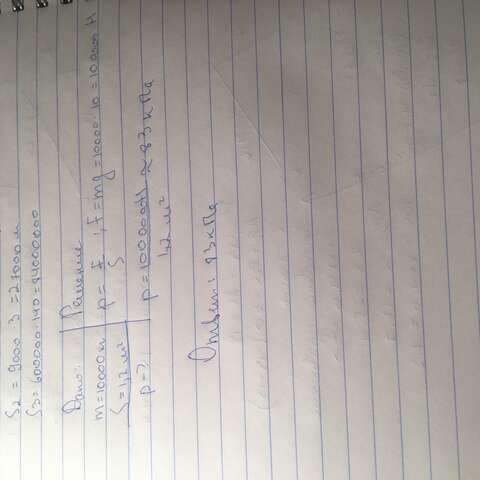 S2 = 9000 · 3 = 27000 м
S3 = 600000 · 140 = 84000000
Дано:
m = 10000 кг
S = 1,2 м²
p - ?
Решение
p = F/S ; F = mg = 10000 · 10 = 100000 Н
p = 100000Н / 1,2 м² ≈ 83 кПа
Ответ: 83 кПа